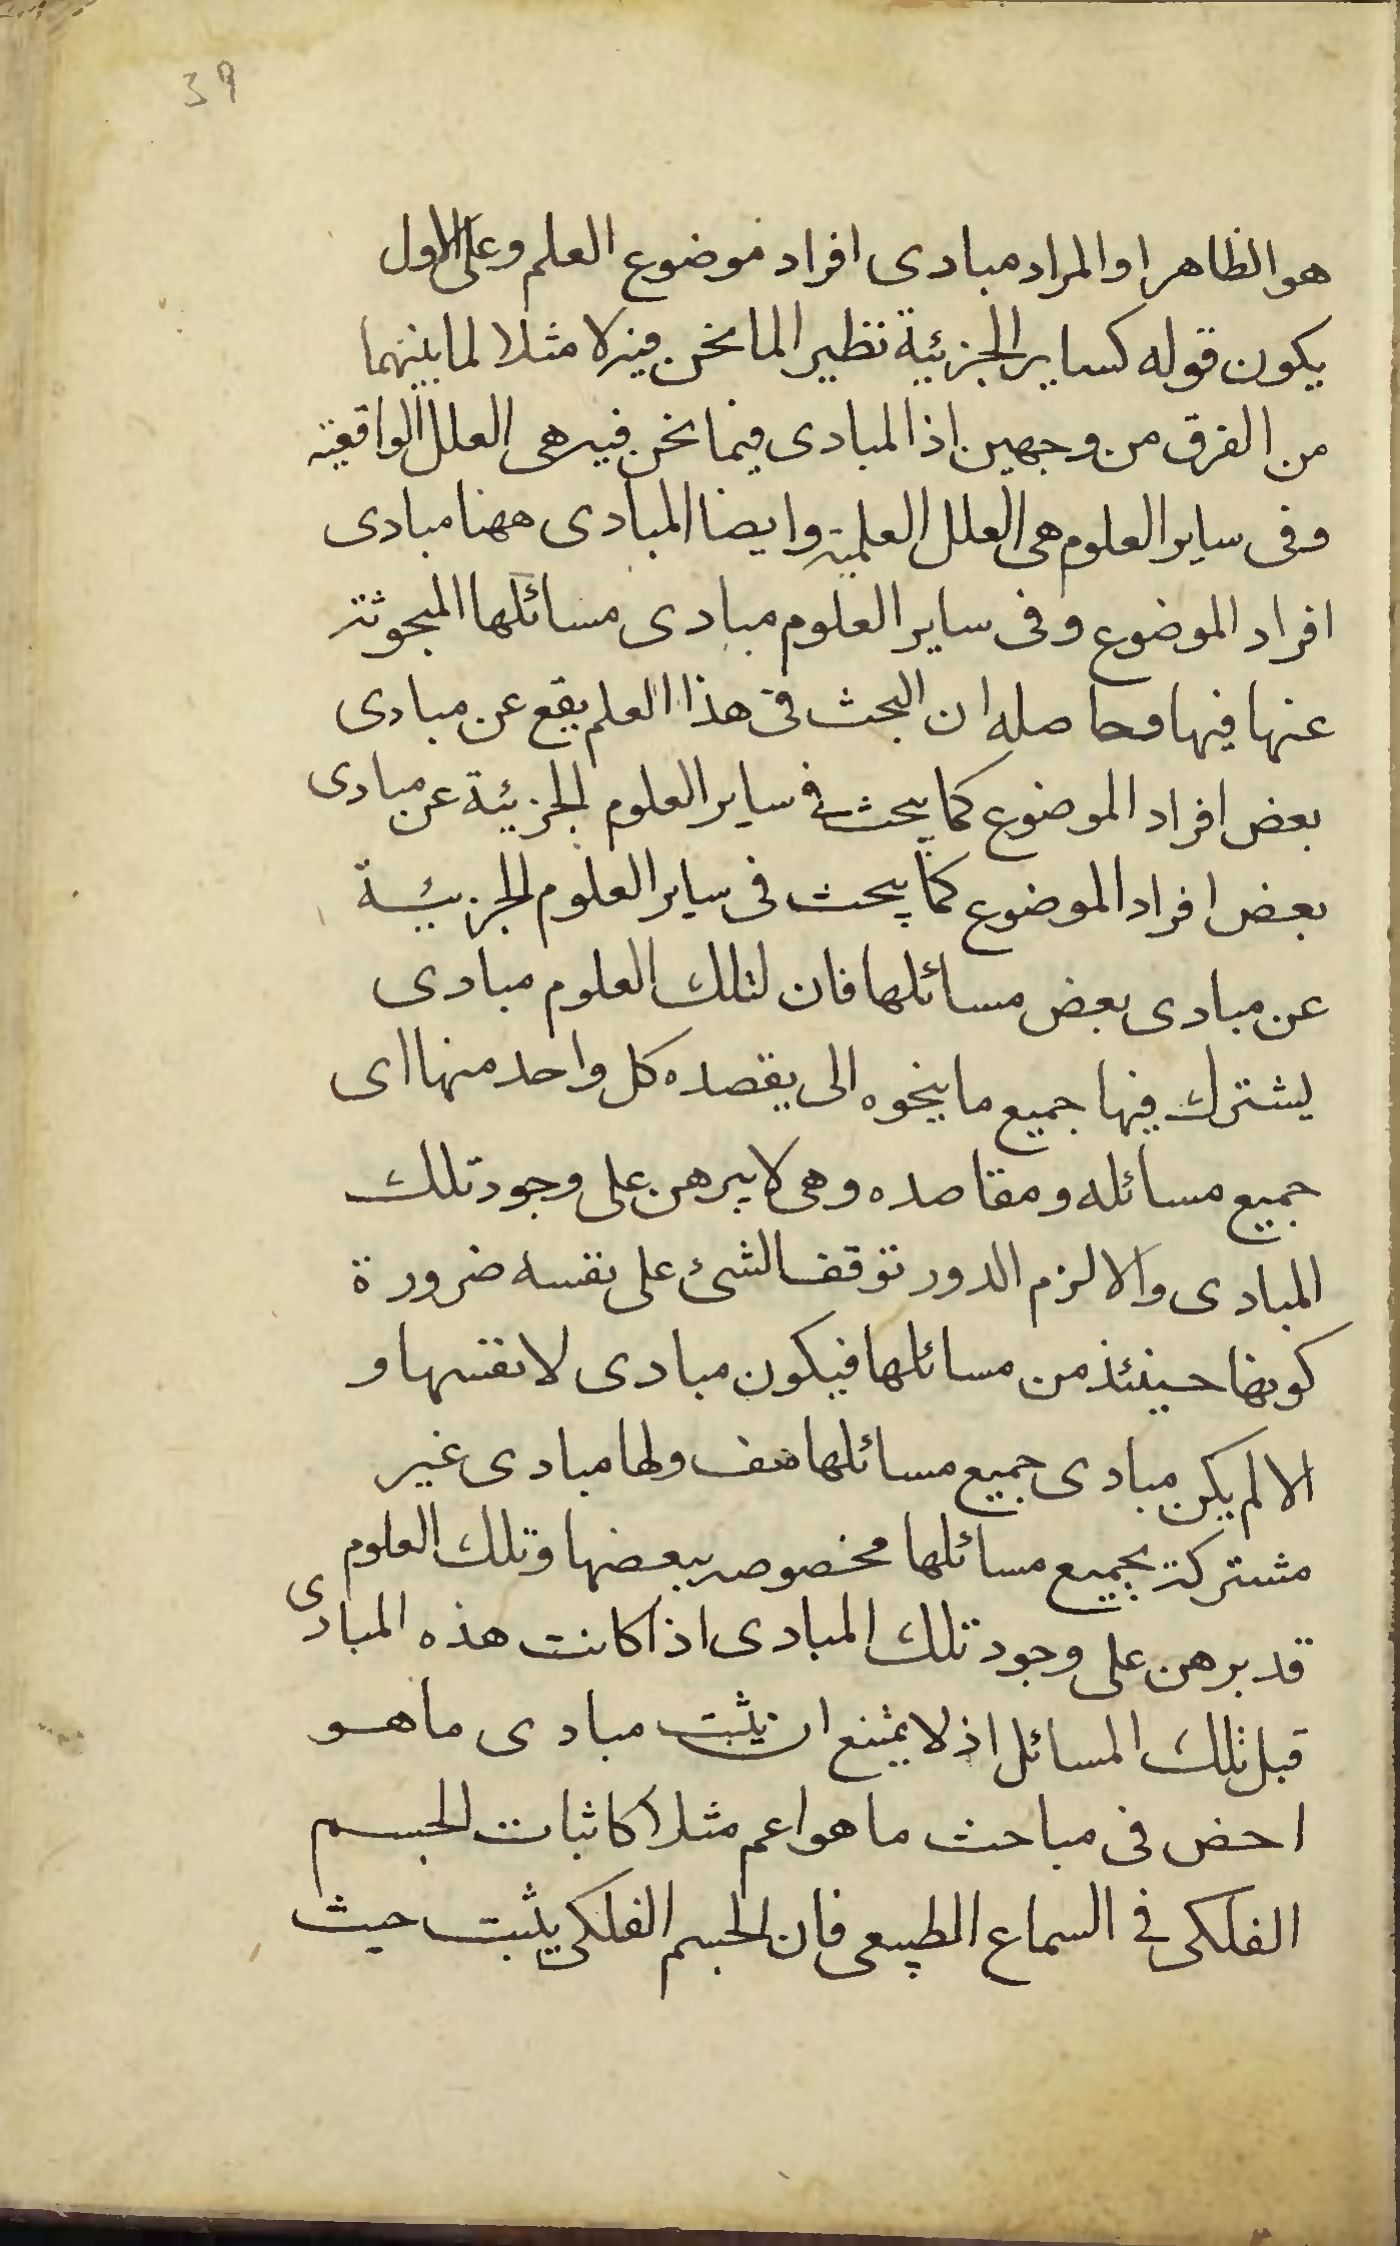 39
هو الظاهر او المراد مبادى افراد موضوع العلم وعلى الاول
يكون قوله كساير الجزئية نظير الما نحن فيه لا مثلا لما بينهما
من الفرق من وجهين اذ المبادى فيما نحن فيه هى العلل الواقعية
وفى ساير العلوم هى العلل العلمية وايضا المبادى ههنا مبادى
افراد الموضوع وفى ساير العلوم مبادى مسائلها المبحوثة
عنها فيها وحاصله ان البحث فى هذا العلم يقع عن مبادى
بعض افراد الموضوع كما يبحث فى ساير العلوم الجزئية عن مبادى
بعض افراد الموضوع كما يبحث فى ساير العلوم الجزئية
عن مبادى بعض مسائلها فان لتلك العلوم مبادى
يشترك فيها جميع ما ينحوه الى يقصده كل واحد منها اى
جميع مسائله ومقاصده وهى لا يبرهن على وجود تلك
المبادى والا لزم الدور توقف الشئ على نفسه ضرورة
كونها حينئذ من مسائلها فيكون مبادى لانفسها و
الا لم يكن مبادى جميع مسائلها هف ولها مبادى غير
مشتركة بجميع مسائلها مخصوصه ببعضها وتلك العلوم
قد برهن على وجود تلك المبادى اذا كانت هذه المبادى
قبل تلك المسائل اذ لا يمتنع ان يثبت مبادى ما هو
احض فى مباحث ما هو اعم مثلا كاثبات الجسم
الفلكى فى السماع الطبيعى فان الجسم الفلكى يثبت حيث